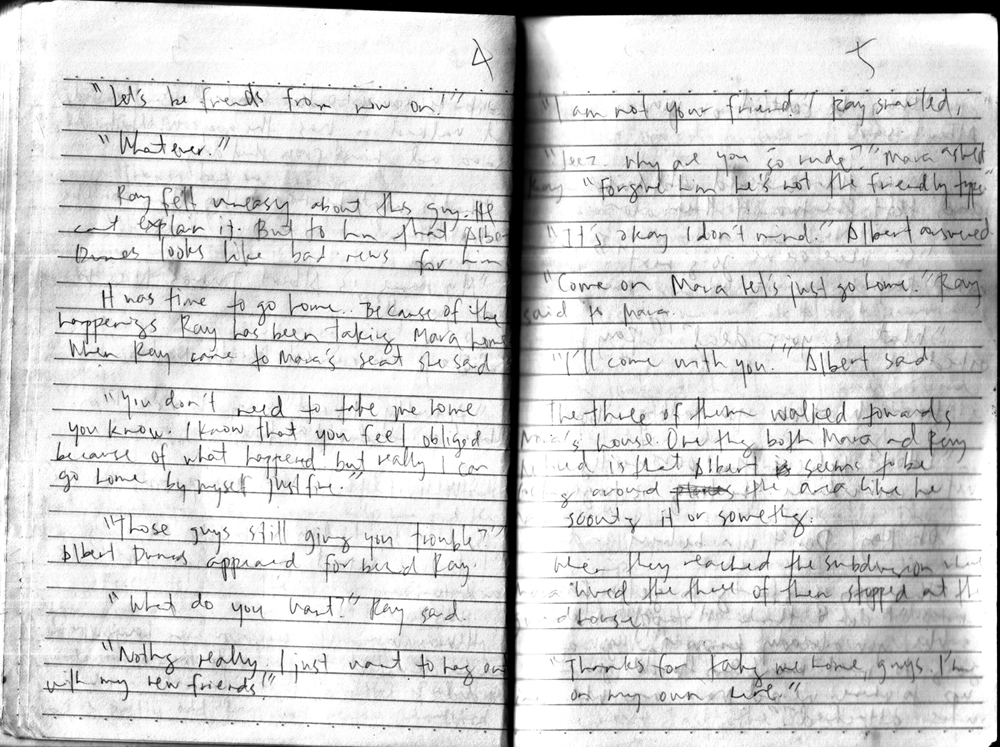 4
"Let's be friends from now on!"
"Whatever."
Ray felt uneasy about this guy. He
cant explain it. But to him that Alber
Dumas looks like bad news for him
It was time to go home. Because of the
happenings Ray has been taking Mara home
When Ray came to Mara's seat she said
"You don't need to take me home
you know. I know that you feel obliged
because of what happened but really I can
go home by myself just fine."
"Those guys still giving you trouble?"
Albert Dumas appeared Ray.
"What do you want?" Ray said.
"Nothing really. I just want to hang out
with my new friends"
5
"I am not your friend!" Ray snarled,
"Jeez. Why are you so rude?" Mara asked
Ray "Forgive him he's not the friendly type"
"It's okay I don't mind." Albert answered
"Come on Mara let's just go home." Ray
said to Mara.
"I'll come with you." Albert said
The three of them walked towards
house. One thing both Mara and Ray
is that Albert seems to be
around the area like he
scouting it or something.
When they reached the subdivision
lived the three of them stopped at the
house
"Thanks for taking me home, guys. I'm
on my own here."